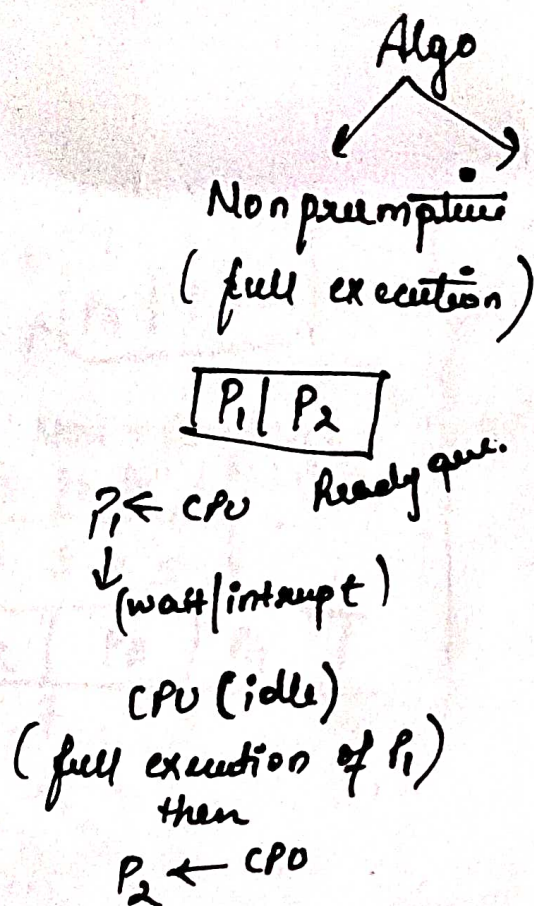 Algo
Nonpreemptive
( full execution )
P₁ | P₂
Ready que.
P₁ ← CPU
↓
(wait/intrupt)
CPU (idle)
( full execution of P₁ )
then
P₂ ← CPU